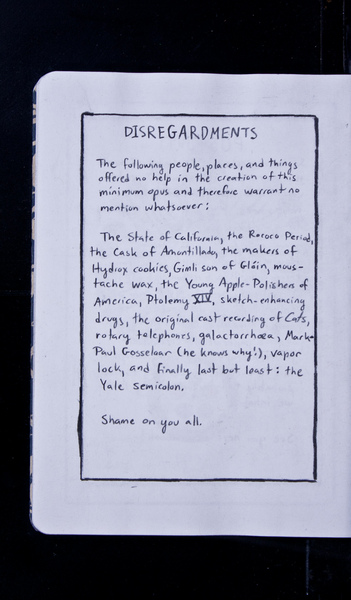 DISREGARDMENTS
The following people, places, and things
offered no help in the creation of this
minimum opus and therefore warrant no
mention whatsoever:
The State of California, the Rococo Period,
the Cask of Amontillado, the makers of
Hydrox cookies, Gimli son of Glóin, mous-
tache wax, the Young Apple-Polishers of
America, Ptolemy XIV, sketch-enhancing
drugs, the original cast recording of Cats,
rotary telephones, galactorrhœa, Mark-
Paul Gosselaar (he knows why!), vapor
lock, and finally last but least: the
Yale semicolon.
Shame on you all.